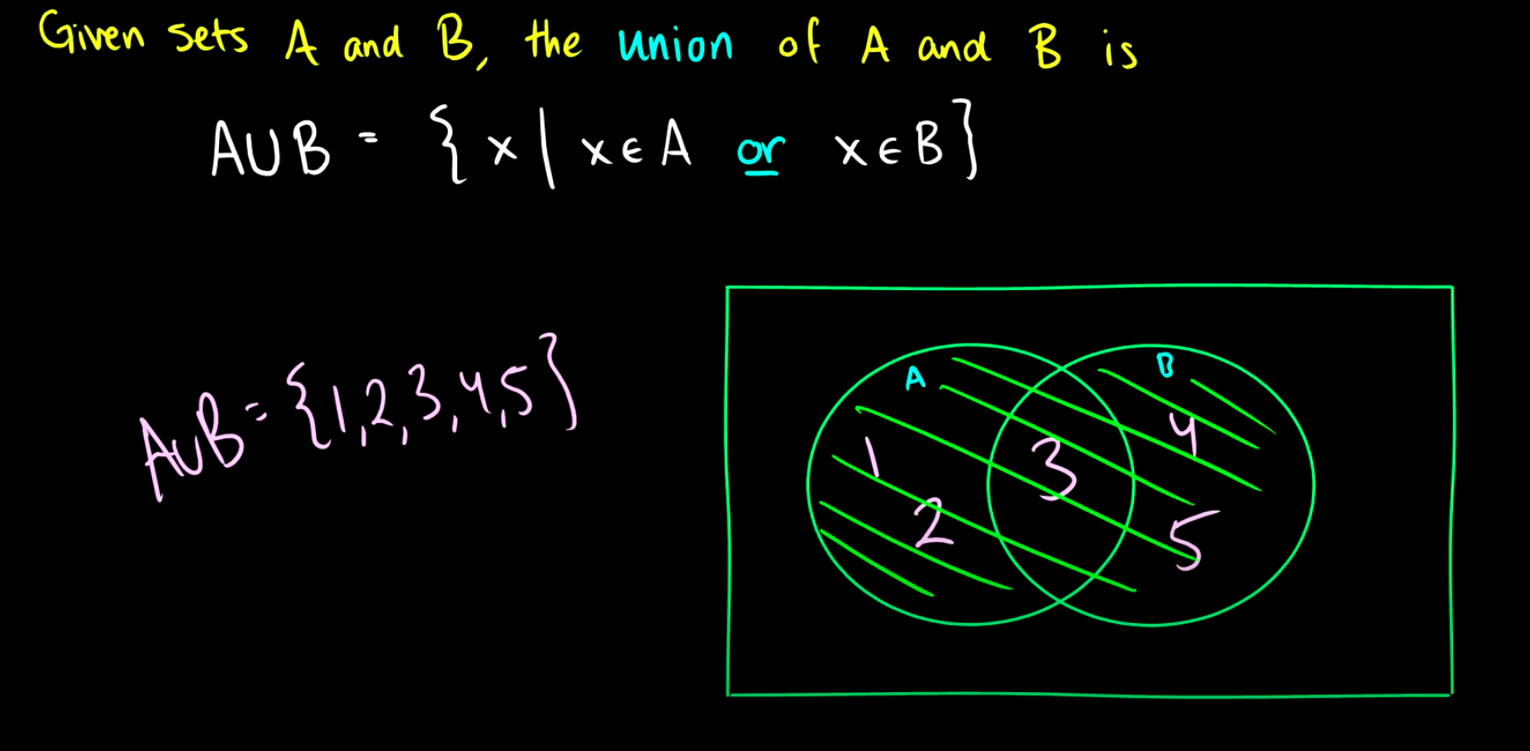 Given sets A and B, the union of A and B is
A∪B = {x | x∈A or x∈B}
A∪B = {1,2,3,4,5}
A B
1 3 4
2 5